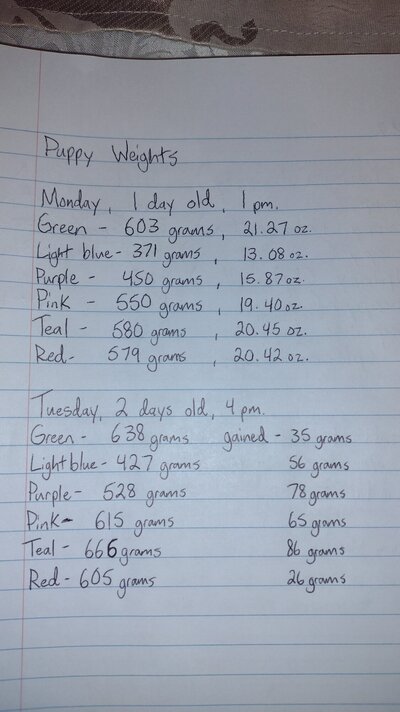 Puppy Weights
Monday, 1 day old, 1 pm.
Green - 603 grams, 21.27 oz.
Light blue - 371 grams, 13.08 oz.
Purple - 450 grams, 15.87 oz.
Pink - 550 grams, 19.40 oz.
Teal - 580 grams, 20.45 oz.
Red - 579 grams, 20.42 oz.
Tuesday, 2 days old, 4 pm.
Green - 638 grams gained - 35 grams
Light blue - 427 grams 56 grams
Purple - 528 grams 78 grams
Pink - 615 grams 65 grams
Teal - 666 grams 86 grams
Red - 605 grams 26 grams